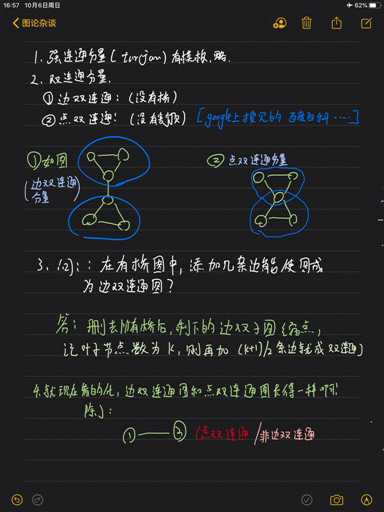 16:57 10月6日周日
62%
图论杂谈
1. 强连通分量 (tarjan) 有模板,略.
2. 双连通分量.
① 边双连通:(没有桥)
② 点双连通:(没有割顶) [google上搜见的 百度百科 ……]
① 如图
(边双连通
分量)
② 点双连通分量
3. 问:: 在有桥图中,添加几条边能使图成
为边双连通图?
答: 删去所有桥后,剩下的边双子图缩点,
记叶子节点数为 k, 则再加 (k+1)/2 条边就成双连通
4. 就现在看的化, 边双连通图和点双连通图长得一样啊
除了:
① — ② (点双连通 / 非边双连通